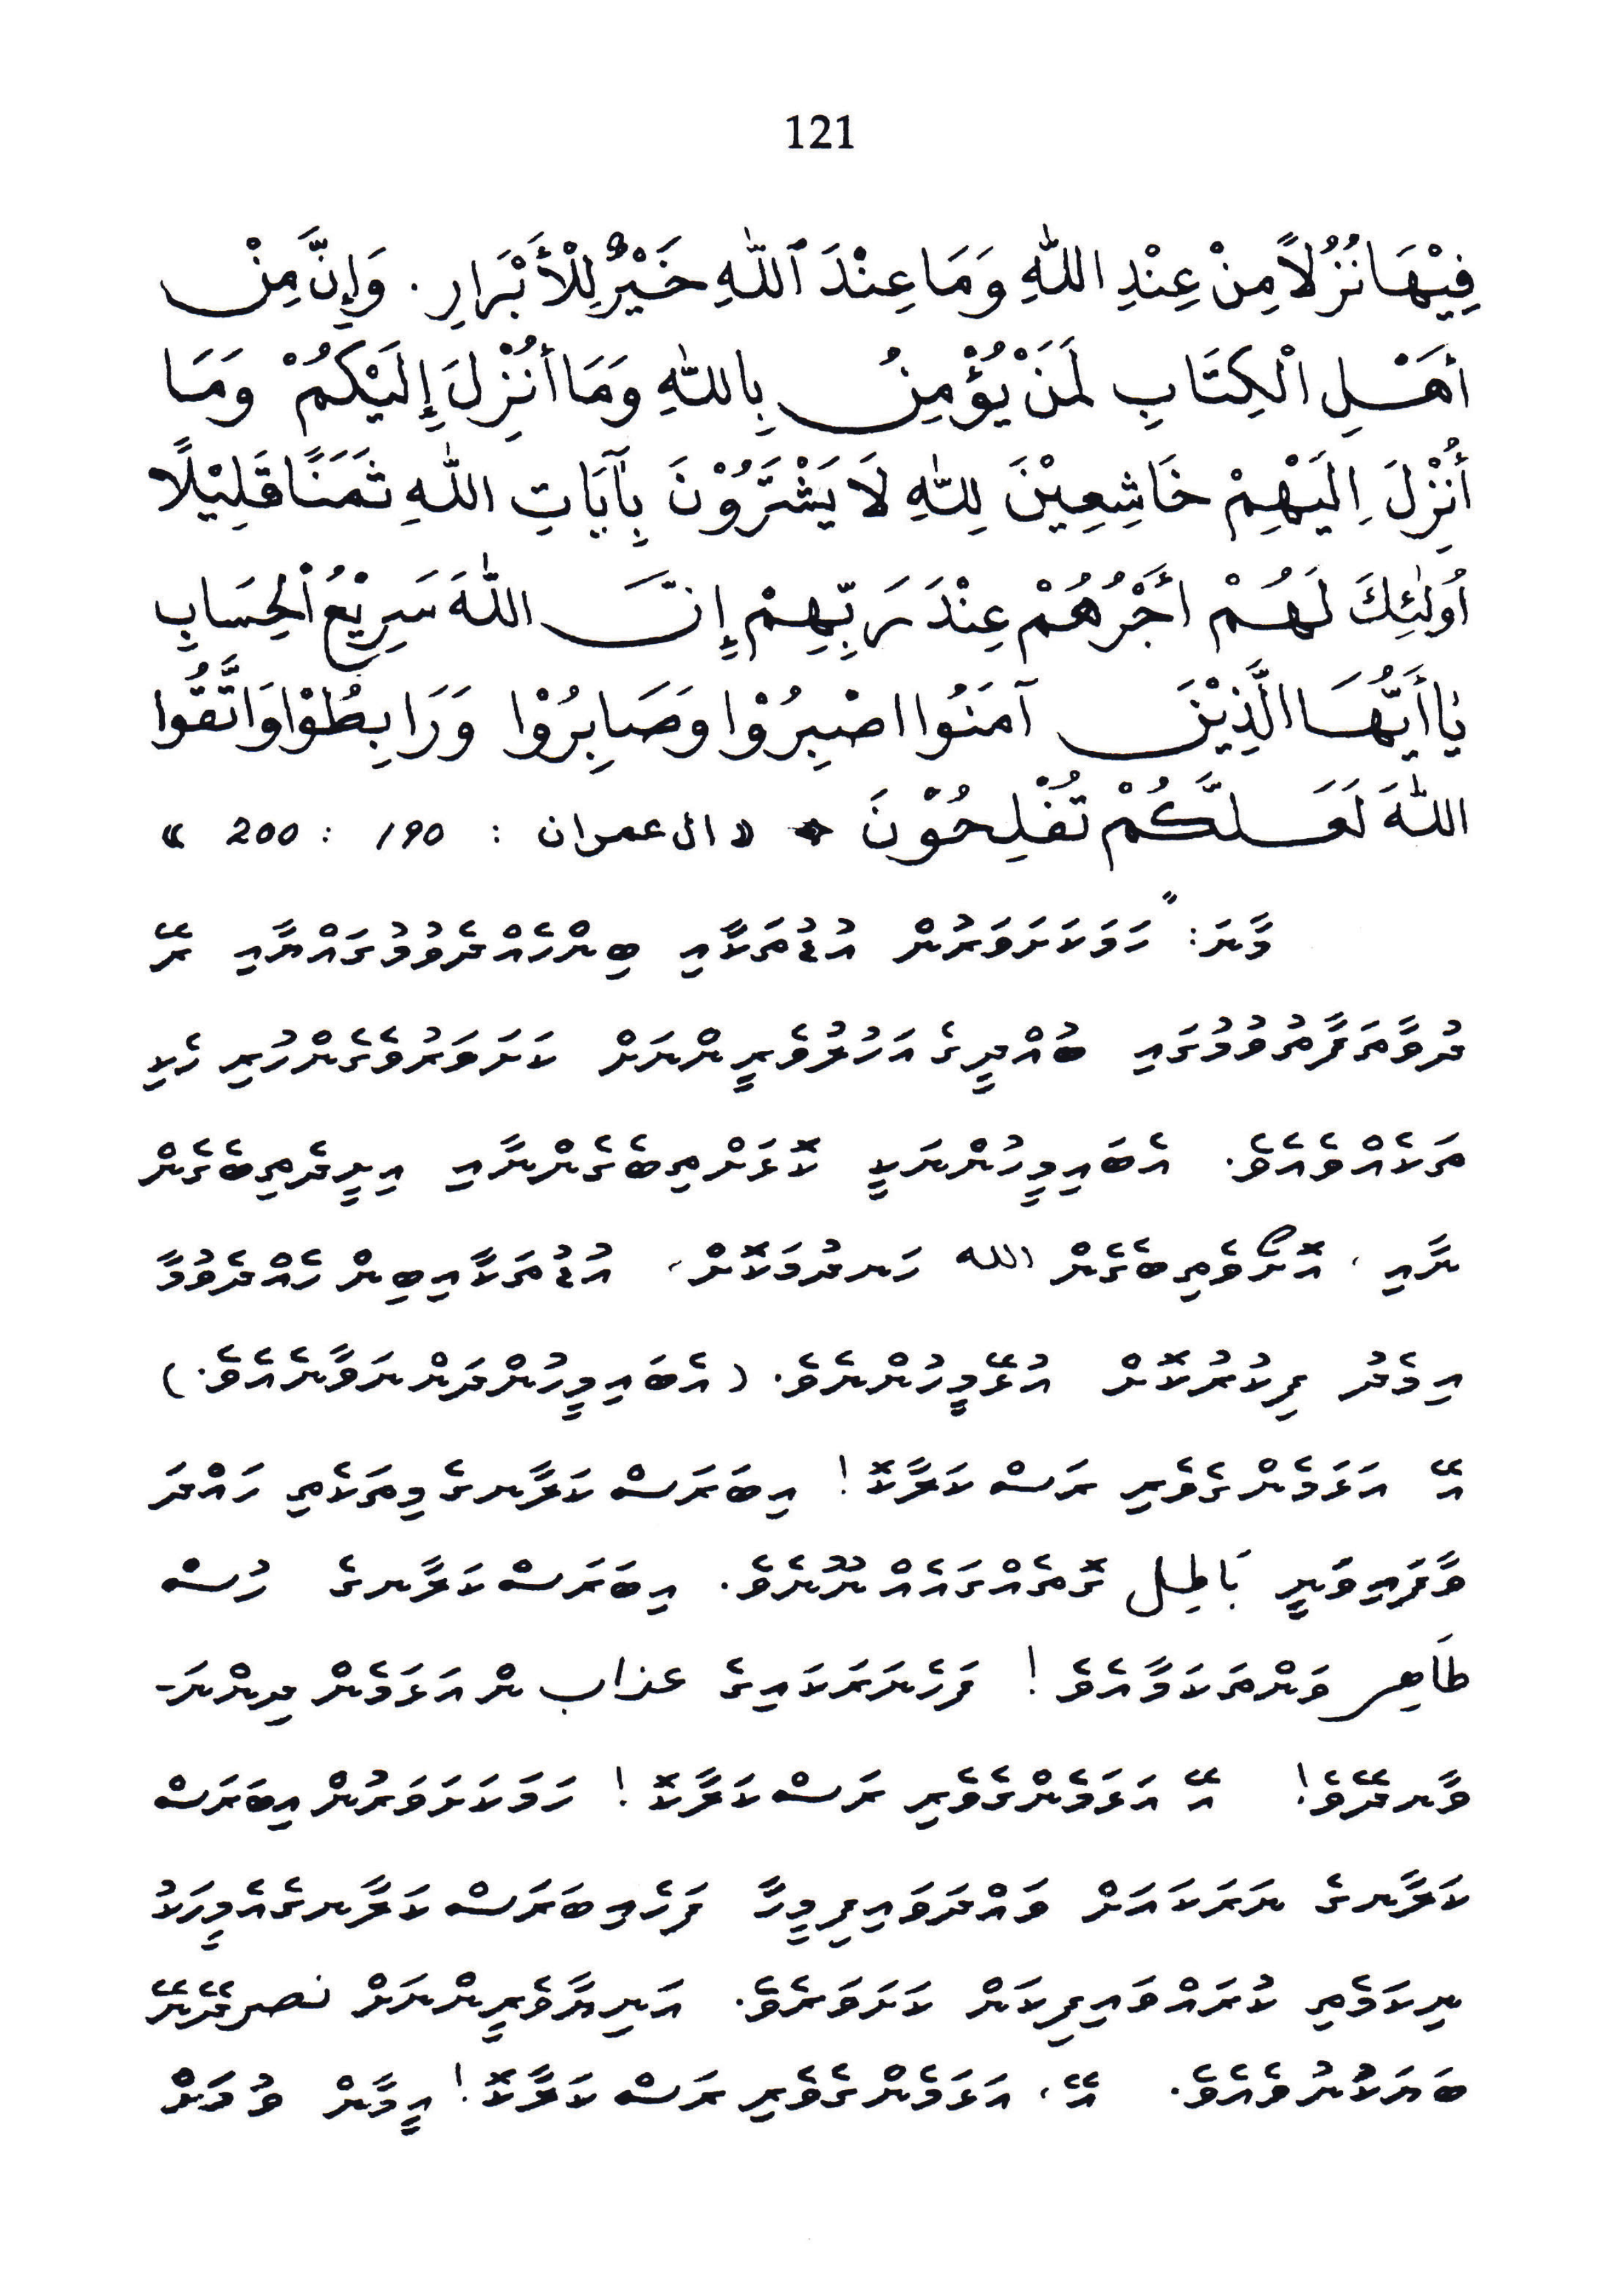 121
فِيْهَا نُزُلاً مِنْ عِنْدِ اللّٰهِ وَمَا عِنْدَ ٱللّٰهِ خَيْرٌ لِلْأَبْرَارِ . وَإِنَّ مِنْ
أهَـْلِ الْكِتَابِ لَمَنْ يُؤْمِنُ بِاللّٰهِ وَمَا أُنْزِلَ إِلَيْكُمْ وَمَا
أُنْزِلَ اِلَيْهِمْ خَاشِعِيْنَ لِلّٰهِ لَا يَشْتَرُوْنَ بِآيَاتِ اللّٰهِ ثَمَنًا قَلِيْلًا
اُولٰئِكَ لَهُمْ أَجْرُهُمْ عِنْدَ رَبِّهِمْ إِنَّ اللّٰهَ سَرِيْعُ الْحِسَابِ
يٰا أَيُّهَا الَّذِيْنَ آمَنُوا اصْبِرُوْا وَصَابِرُوْا وَرَابِطُوْا وَاتَّقُوا
اللّٰهَ لَعَلَّكُمْ تُفْلِحُوْنَ ◆ «ال عمران : ١٩٠ : 200 »
މާނަ: "ހަމަކަށަވަރުން އުޑުތަކާއި ބިންހެއްދެވުމުގައްޔާއި ރޭ
ދުވާތަފާތުވުމުގައި ބުއްދީގެ އަހުލުވެރީންނަށް ކަށަވަރުވެގެންހުރި ހެކި
ތަކެއްވެއެވެ. އެބައިމީހުންނަކީ ކޮޅަށްތިބެގެންނާއި އިށީދެތިބެގެން
ނާއި، އޮށޯވެތިބެގެން الله ހަނދުމަކޮށް، އުޑުތަކާއިބިން ހެއްދެވުމާ
އިމެދު ފިކުރުކޮށް އުޅޭމީހުންނެވެ. (އެބައިމީހުންދަންނަވާނެއެވެ.)
އޭ އަޅަމެންގެވެރި ރަސްކަލާކޮ! އިބަރަސްކަލާނގެ މިތަކެތި ހައްދަ
ވާފައިވަނީ بَاطِل ގޮތެއްގައެއް ނޫނެވެ. އިބަރަސްކަލާނގެ ހުސް
طَاهِر ވަންތަކަމާއެވެ! ފަހެނަރަކައިގެ عذاب ން އަޅަމެން ދިންނަ-
ވާނދޭވެ! އޭ އަޅަމެންގެވެރި ރަސްކަލާކޮ! ހަމަކަށަވަރުން އިބަރަސް
ކަލާނގެ ނަރަކައަށް ވައްދަވައިފިމީހާ ފަހެއިބަރަސްކަލާނގެއެމީހަކު
ނިކަމެތި ކުރައްވައިފިކަން ކަށަވަރެވެ. އަނިޔާވެރީންނަށް نصر ދޭނޭ
ބަޔަކުނުވެއެވެ. އޭ، އަޅަމެންގެވެރި ރަސްކަލާކޮ! އީމާން ވުމަށް